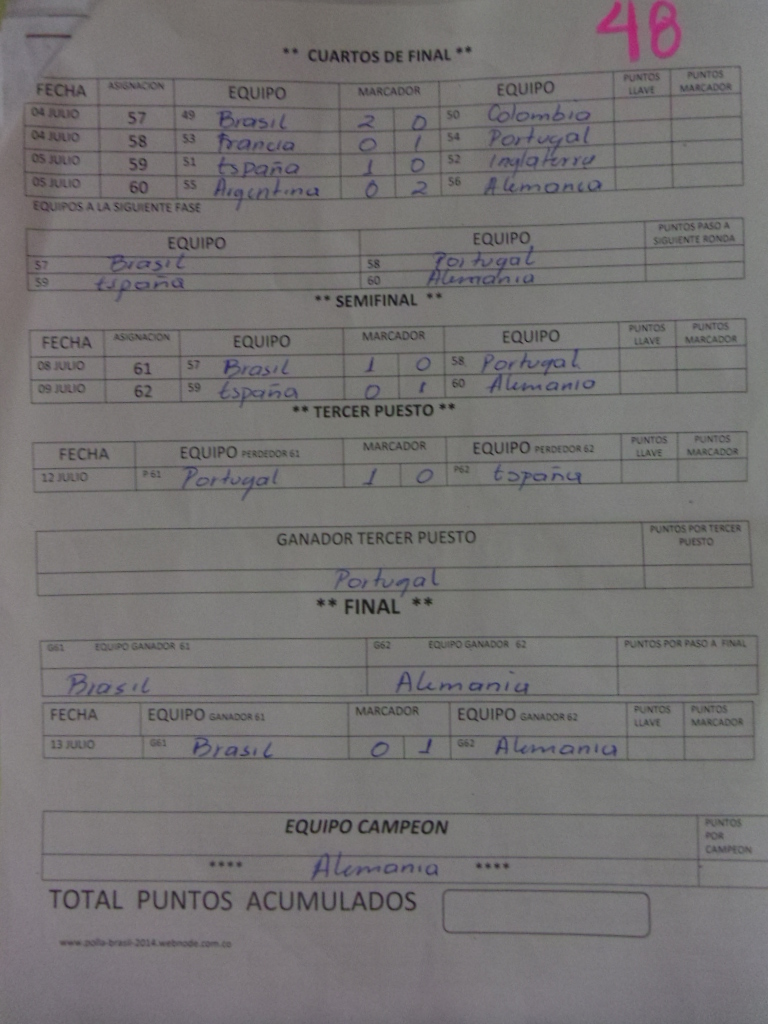 48
** CUARTOS DE FINAL **
FECHA ASIGNACION EQUIPO MARCADOR EQUIPO PUNTOS LLAVE PUNTOS MARCADOR
04 JULIO 57 49 Brasil 2 0 50 Colombia
04 JULIO 58 53 Francia 0 1 54 Portugal
05 JULIO 59 51 España 1 0 52 Inglaterra
05 JULIO 60 55 Argentina 0 2 56 Alemania
EQUIPOS A LA SIGUIENTE FASE
EQUIPO EQUIPO PUNTOS PASO A SIGUIENTE RONDA
57 Brasil 58 Portugal
59 España 60 Alemania
** SEMIFINAL **
FECHA ASIGNACION EQUIPO MARCADOR EQUIPO PUNTOS LLAVE PUNTOS MARCADOR
08 JULIO 61 57 Brasil 1 0 58 Portugal
09 JULIO 62 59 España 0 1 60 Alemania
** TERCER PUESTO **
FECHA EQUIPO PERDEDOR 61 MARCADOR EQUIPO PERDEDOR 62 PUNTOS LLAVE PUNTOS MARCADOR
12 JULIO P 61 Portugal 1 0 P62 España
GANADOR TERCER PUESTO PUNTOS POR TERCER PUESTO
Portugal
** FINAL **
G61 EQUIPO GANADOR 61 G62 EQUIPO GANADOR 62 PUNTOS POR PASO A FINAL
Brasil Alemania
FECHA EQUIPO GANADOR 61 MARCADOR EQUIPO GANADOR 62 PUNTOS LLAVE PUNTOS MARCADOR
13 JULIO G61 Brasil 0 1 G62 Alemania
EQUIPO CAMPEON PUNTOS POR CAMPEON
**** Alemania ****
TOTAL PUNTOS ACUMULADOS
www.polla-brasil-2014.webnode.com.co